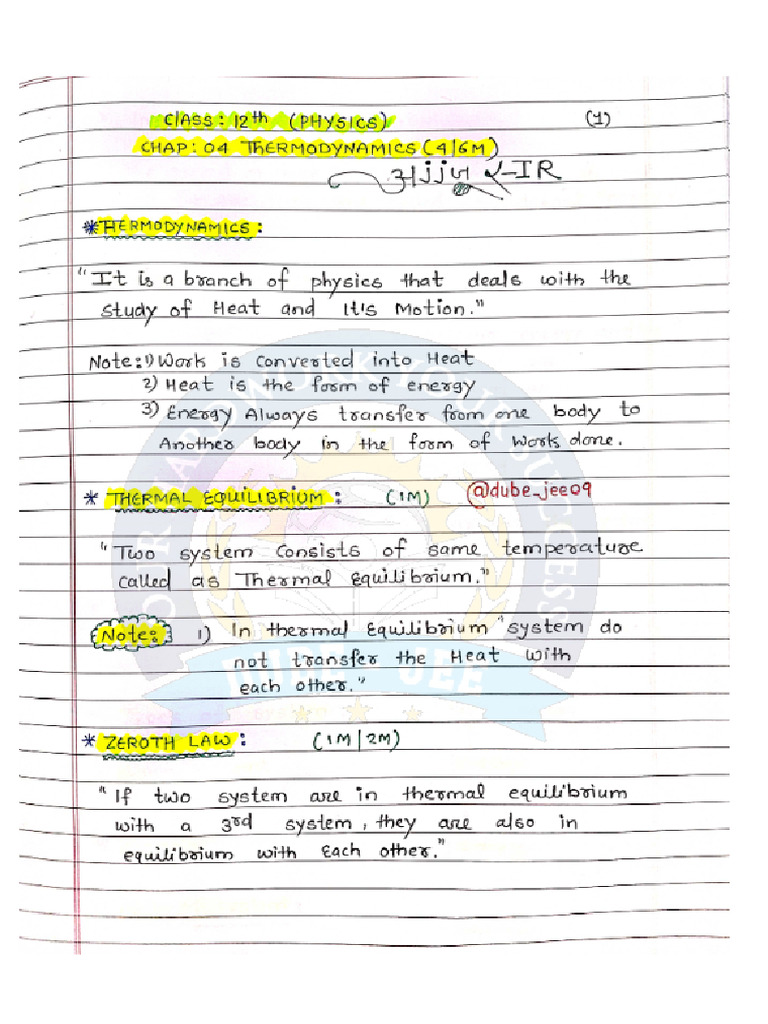 Class: 12th (PHYSICS) (1)
CHAP: 04 THERMODYNAMICS (4/6M)
*THERMODYNAMICS:
"It is a branch of physics that deals with the
study of Heat and It's Motion."
Note: 1) Work is Converted into Heat
2) Heat is the form of energy
3) Energy Always transfer from one body to
Another body in the form of work done.
* THERMAL EQUILIBRIUM: (1M) @dube_jee09
"Two system Consists of same temperature
called as Thermal Equilibrium."
Note: 1) In thermal Equilibrium "system do
not transfer the Heat with
each other."
DUBE JEE
* ZEROTH LAW: (1M/2M)
"If two system are in thermal equilibrium
with a 3rd system, they are also in
equilibrium with Each other."